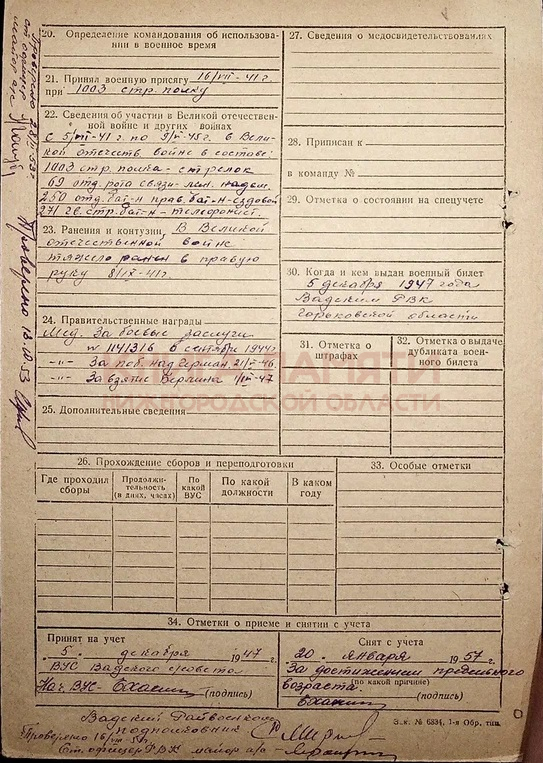 20. Определение командования об использова-
нии в военное время
21. Принял военную присягу 16/VII-41 г.
при 1003 стр. полку
22. Сведения об участии в Великой отечествен-
ной войне и других войнах
с 5/VII-41 г. по 9/V-45 г. в Вели-
кой отечеств. войне в составе:
1003 стр. полка - стрелок
69 отд. рота связи - лин. надсм.
250 отд. бат-н прав. бат-н - ездовой
271 гв. стр. бат-н - телефонист.
23. Ранения и контузии В Великой
отечественной войне
тяжело ранен в правую
руку 8/IX-41 г.
24. Правительственные награды
Мед. За боевые заслуги
№ 1141316 6 сентября 1944 г.
-"- За поб. над Герман. 21/V-46.
-"- За взятие Берлина
25. Дополнительные сведения
26. Прохождение сборов и переподготовки
Где проходил сборы
Продолжи-
тельность
(в днях, часах)
По какой ВУС
По какой должности
В каком году
27. Сведения о медосвидетельствованиях
28. Приписан к
в команду №
29. Отметка о состоянии на спецучете
30. Когда и кем выдан военный билет
5 декабря 1947 года
Вадским РВК
Горьковской области
31. Отметка о штрафах
32. Отметка о выдаче
дубликата воен-
ного билета
33. Особые отметки
34. Отметки о приеме и снятии с учета
Принят на учет
5. декабря 1947 г.
ВУС Вадского с/совета
Нач. ВУС - (подпись)
Снят с учета
20. января 1957 г.
За достижением предельного
(по какой причине)
возраста.
(подпись)
Вадский Райвоенком
подполковник
Проверено 16/VIII-51 г.
Ст. офицер РВК майор а/с
Зак. № 6834, 1-я Обр. тип.
Проверено 28/VII.53 г.
Проверено 13.10.53
КНИГА ПАМЯТИ
НИЖЕГОРОДСКОЙ ОБЛАСТИ